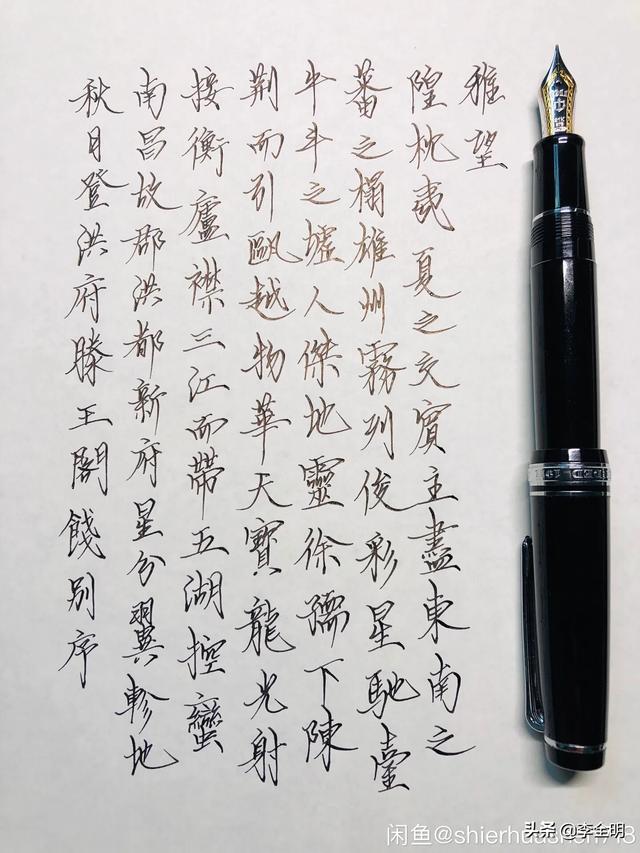 秋日登洪府滕王閣餞別序
南昌故郡洪都新府星分翼軫地
接衡廬襟三江而帶五湖控蠻
荆而引甌越物華天寶龍光射
牛斗之墟人傑地靈徐孺下陳
蕃之榻雄州霧列俊彩星馳臺
隍枕夷夏之交賓主盡東南之
雅望
头条 @李全明
闲鱼